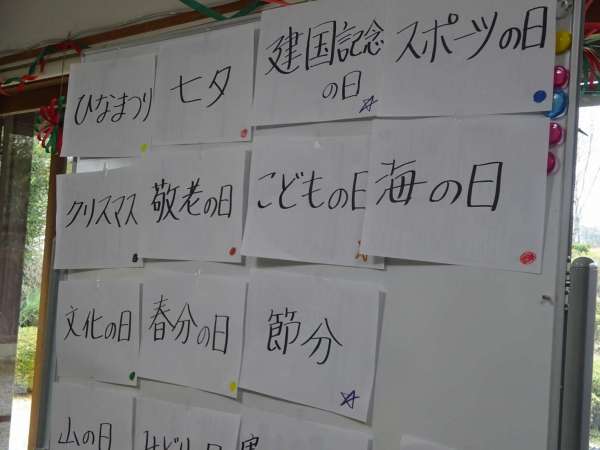 ひなまつり
七夕
建国記念
の日
スポーツの日
クリスマス
敬老の日
こどもの日
海の日
文化の日
春分の日
節分
山の日